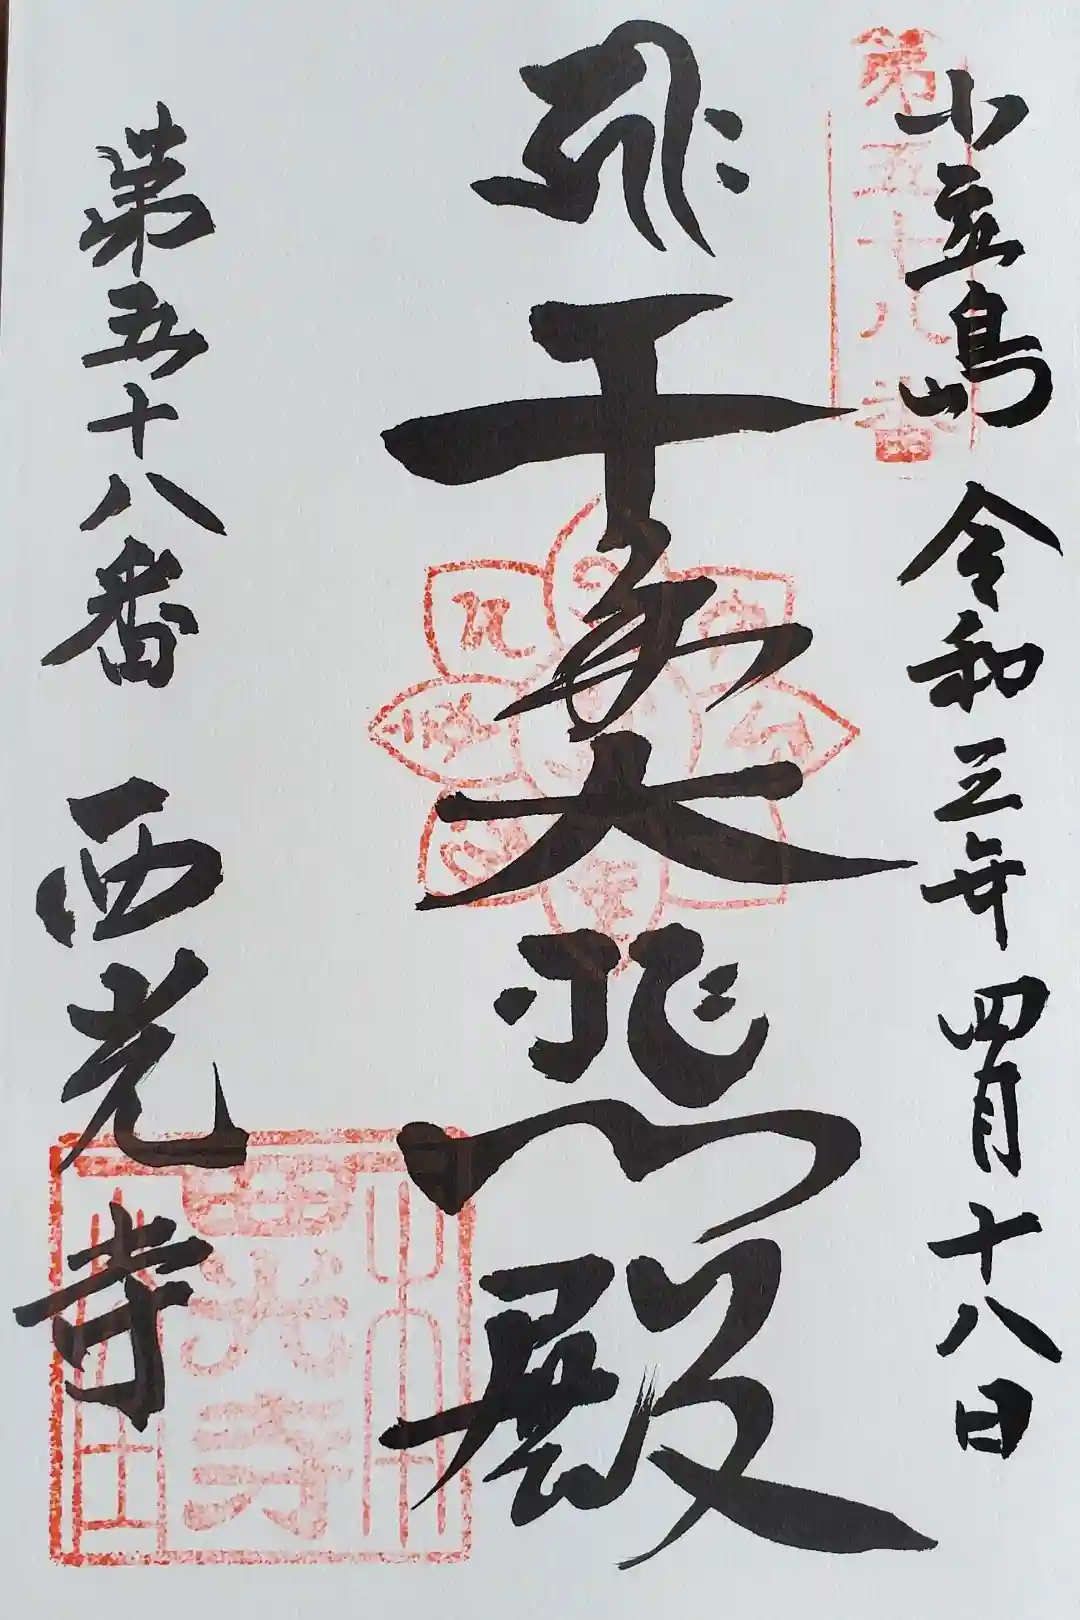 第五十八番
小豆島 令和三年四月十八日
千手大悲殿
第五十八番 西光寺
西光寺